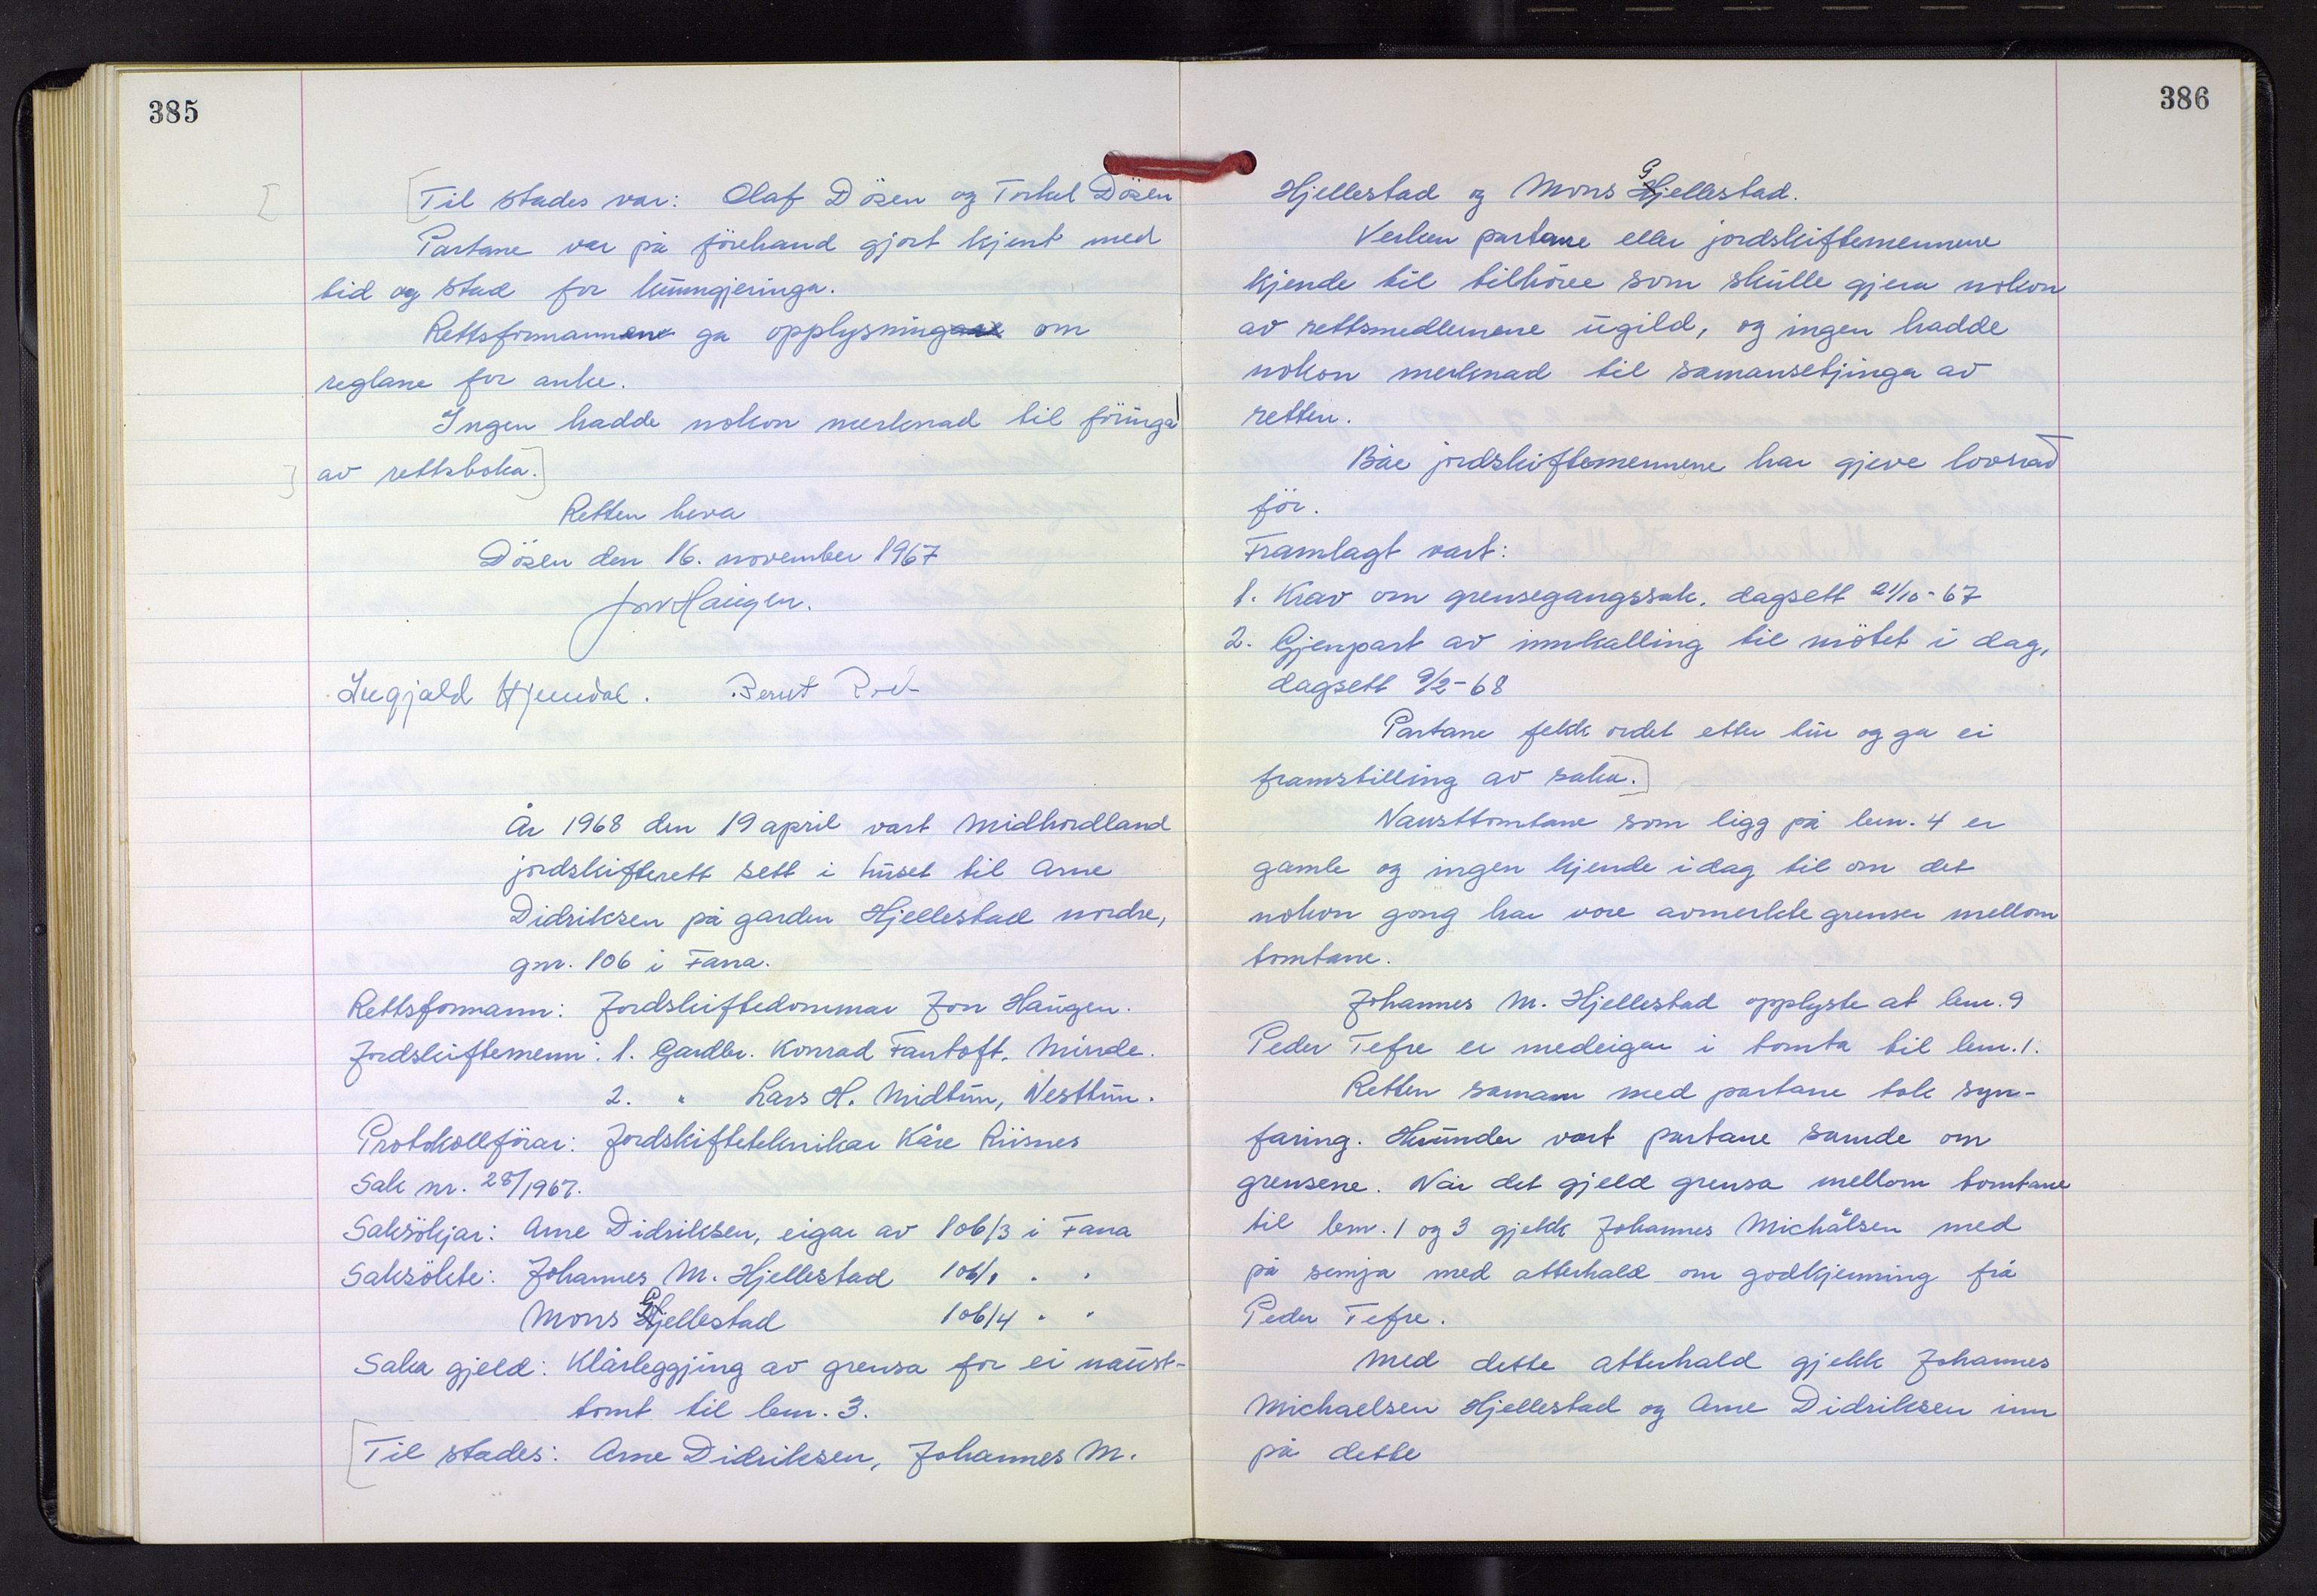 385
[Til stades var: Olaf Dösen og Torkel Dösen
Partane var på förehand gjort kjent med
tid og stad for kunngjeringa.
Rettsformannen ga opplysning om
reglane for anke.
Ingen hadde nokon merknad til föringa
av rettsboka.]
Retten heva
Dösen den 16. november 1967
Jon Haugen.
Ingjald Hjemdal. Bernt
År 1968 den 19 april vart Midhordland
jordskifterett sett i huset til Arne
Didriksen på garden Hjellestad nordre,
gnr. 106 i Fana.
Rettsformann: Jordskiftedommar Jon Haugen.
Jordskiftemenn: 1. Gardbr. Konrad Fantoft, Minde.
2. " Lars H. Midtun, Nesttun.
Protokollförar: Jordskifteteknikar Kåre Riisnes
Sak nr. 28/1967.
Saksökjar: Arne Didriksen, eigar av 106/3 i Fana
Saksökte: Johannes M. Hjellestad 106/1 " "
Mons Gjellestad 106/4 " "
Saka gjeld: Klårleggjing av grensa for ei naust-
tomt til bnr. 3.
[Til stades: Arne Didriksen, Johannes M.
386
Hjellestad og Mons Gjellestad.
Verken partane eller jordskiftemennene
kjende til tilhöve som skulle gjera nokon
av rettsmedlemene ugild, og ingen hadde
nokon merknad til samansetjinga av
retten.
Båe jordskiftemennene har gjeve lovnad
för.
Framlagt vart:
1. Krav om grensegangssak, dagsett 21/10-67
2. Gjenpart av innkalling til mötet i dag,
dagsett 9/2-68
Partane fekk ordet etter tur og ga ei
framstilling av saka.]
Nausttomtane som ligg på bnr. 4 er
gamle og ingen kjende idag til om det
nokon gong har vore avmerkte grenser mellom
tomtane.
Johannes M. Hjellestad opplyste at bnr. 9
Peder Tefre er medeigar i tomta til bnr. 1.
Retten saman med partane tok syn-
faring. Herunder vart partane samde om
grensene. Når det gjeld grensa mellom tomtane
til bnr. 1 og 3 gjekk Johannes Michælsen med
på semja med atterhald om godkjenning frå
Peder Tefre.
Med dette atterhald gjekk Johannes
Michaelsen Hjellestad og Arne Didriksen inn
på dette